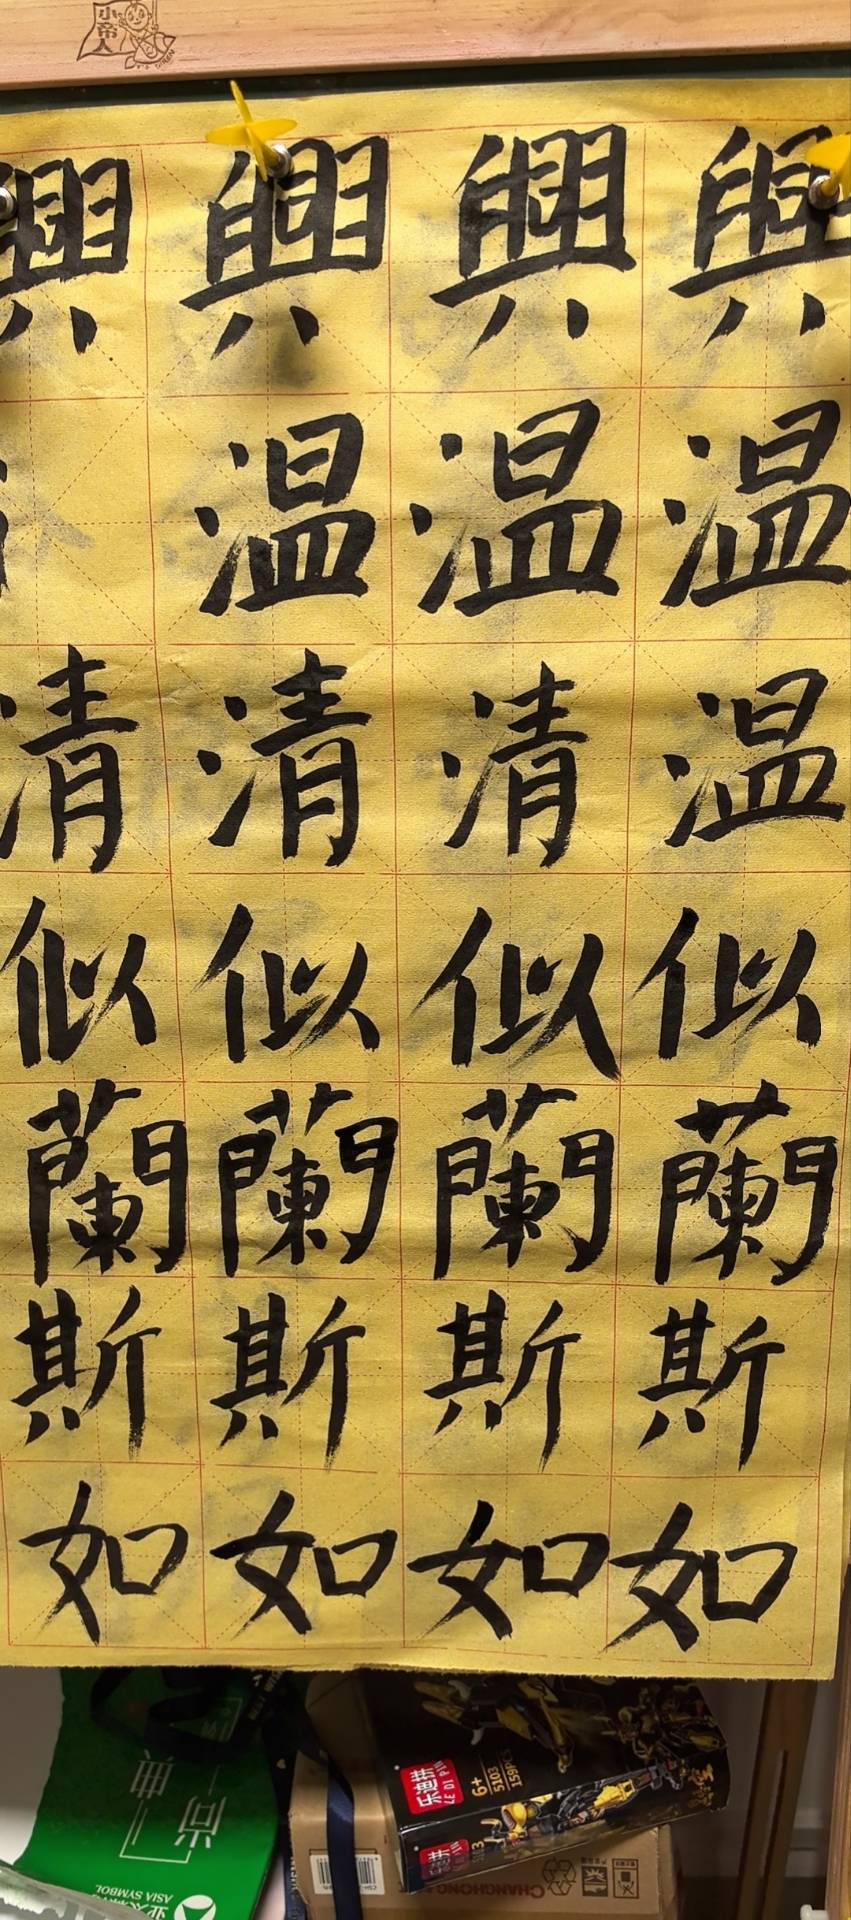 小帝人
興温温似蘭斯如
興温清似蘭斯如
興温清似蘭斯如
興清似蘭斯如
尚典
ASIA SYMBOL
乐迪拼
6+
5103
CHANGHONG